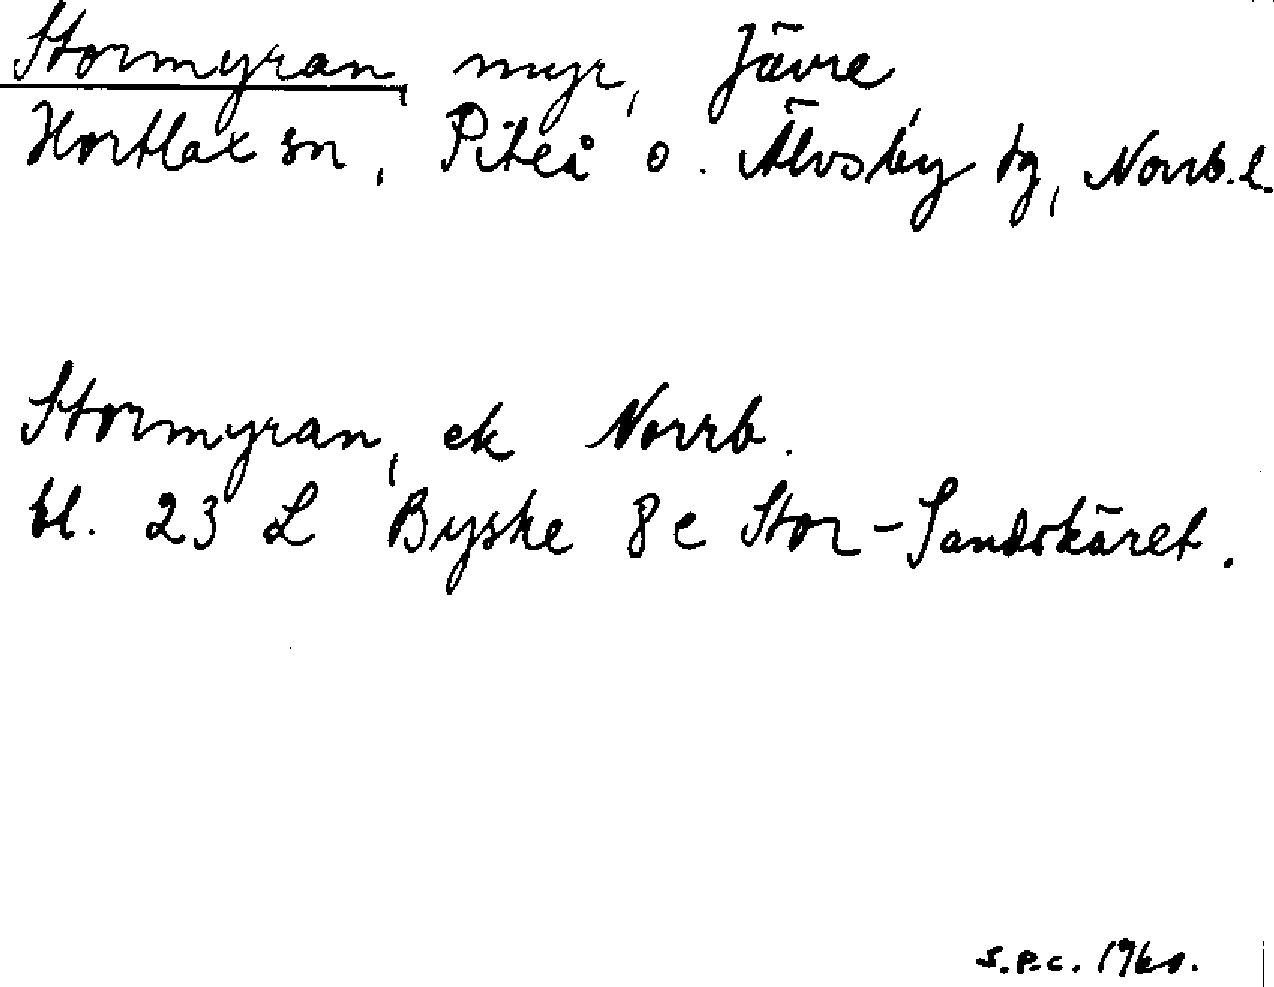 Stormyran, myr, Jävre,
Hortlax sn, Piteå o. Älvsby tg, Norrb. l.
Stormyran, ek Norrb.
bl. 23 L Byske 8 e Stor-Sandskäret.
S.P.C. 1960.